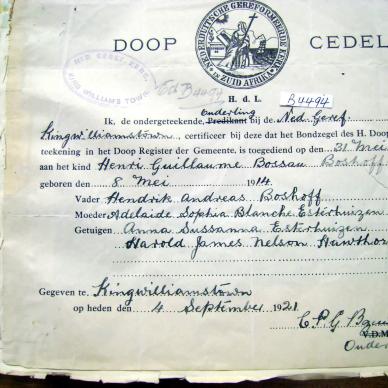 DOOP CEDEL
NEDERDUITSCHE GEREFORMEERDE KERK
IN ZUID AFRIKA
NED. GEREF. KERK,
KING WILLIAMS TOWN.
Ed B4494
H. d. L.
B4494
ouderling
Ik, de ondergeteekende, Predikant bij de Ned. Geref.
Kingwilliamstown, certificeer bij deze dat het Bondzegel des H. Doop
teekening in het Doop Register der Gemeente, is toegediend op den 31 Mei
aan het kind Henri Guillaume Bossau Boshoff
geboren den 8 Mei 1914.
Vader Hendrik Andreas Boshoff
Moeder Adelaide Sophia Blanche Esterhuizen
Getuigen Anna Sussanna Esterhuizen
Harold James Nelson Hawthor
Gegeven te Kingwilliamstown
op heden den 4 September 1921
C. P. G.
V.D.M.
Ouder